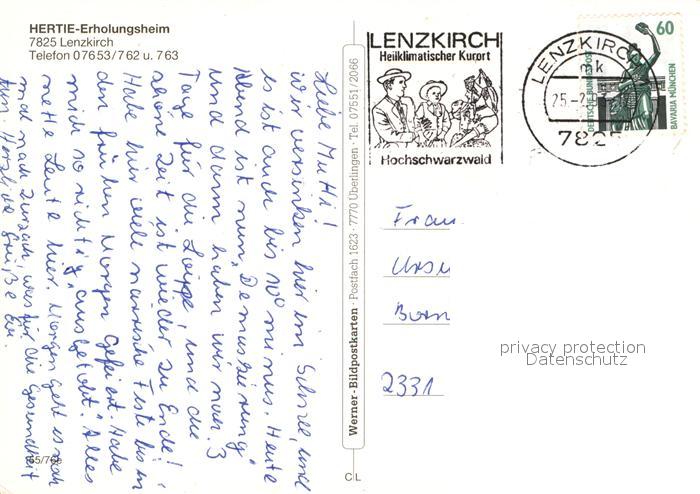 HERTIE-Erholungsheim
7825 Lenzkirch
Telefon 07653/762 u. 763
Liebe Mutti!
Wir versinken hier im Schnee, und
es ist auch bis 10° minus. Heute
Abend ist nun "Demaskierung"
und dann haben wir noch 3
Tage für die Loipe, und die
schöne Zeit ist wieder zu Ende!
Habe hier viele närrische Feste bis in
den frühen Morgen gefeiert. Habe
mich so richtig "ausgetobt". Alles
nette Leute hier. Morgen geht es noch
mal nach Zurzach, was für die Gesundheit
tun. Herzliche Grüße Eu.
65/76
Werner-Bildpostkarten · Postfach 1623 · 7770 Überlingen · Tel. 07551/2066
CL
LENZKIRCH
Heilklimatischer Kurort
Hochschwarzwald
LENZKIRCH
mk
25.-2
782
60
DEUTSCHE BUNDESPOST
BAVARIA MÜNCHEN
Frau
Ursu
Born
2331
privacy protection
Datenschutz